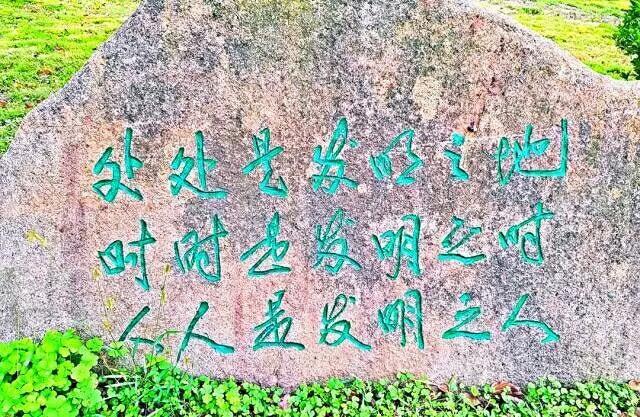 处处是发明之地
时时是发明之时
人人是发明之人